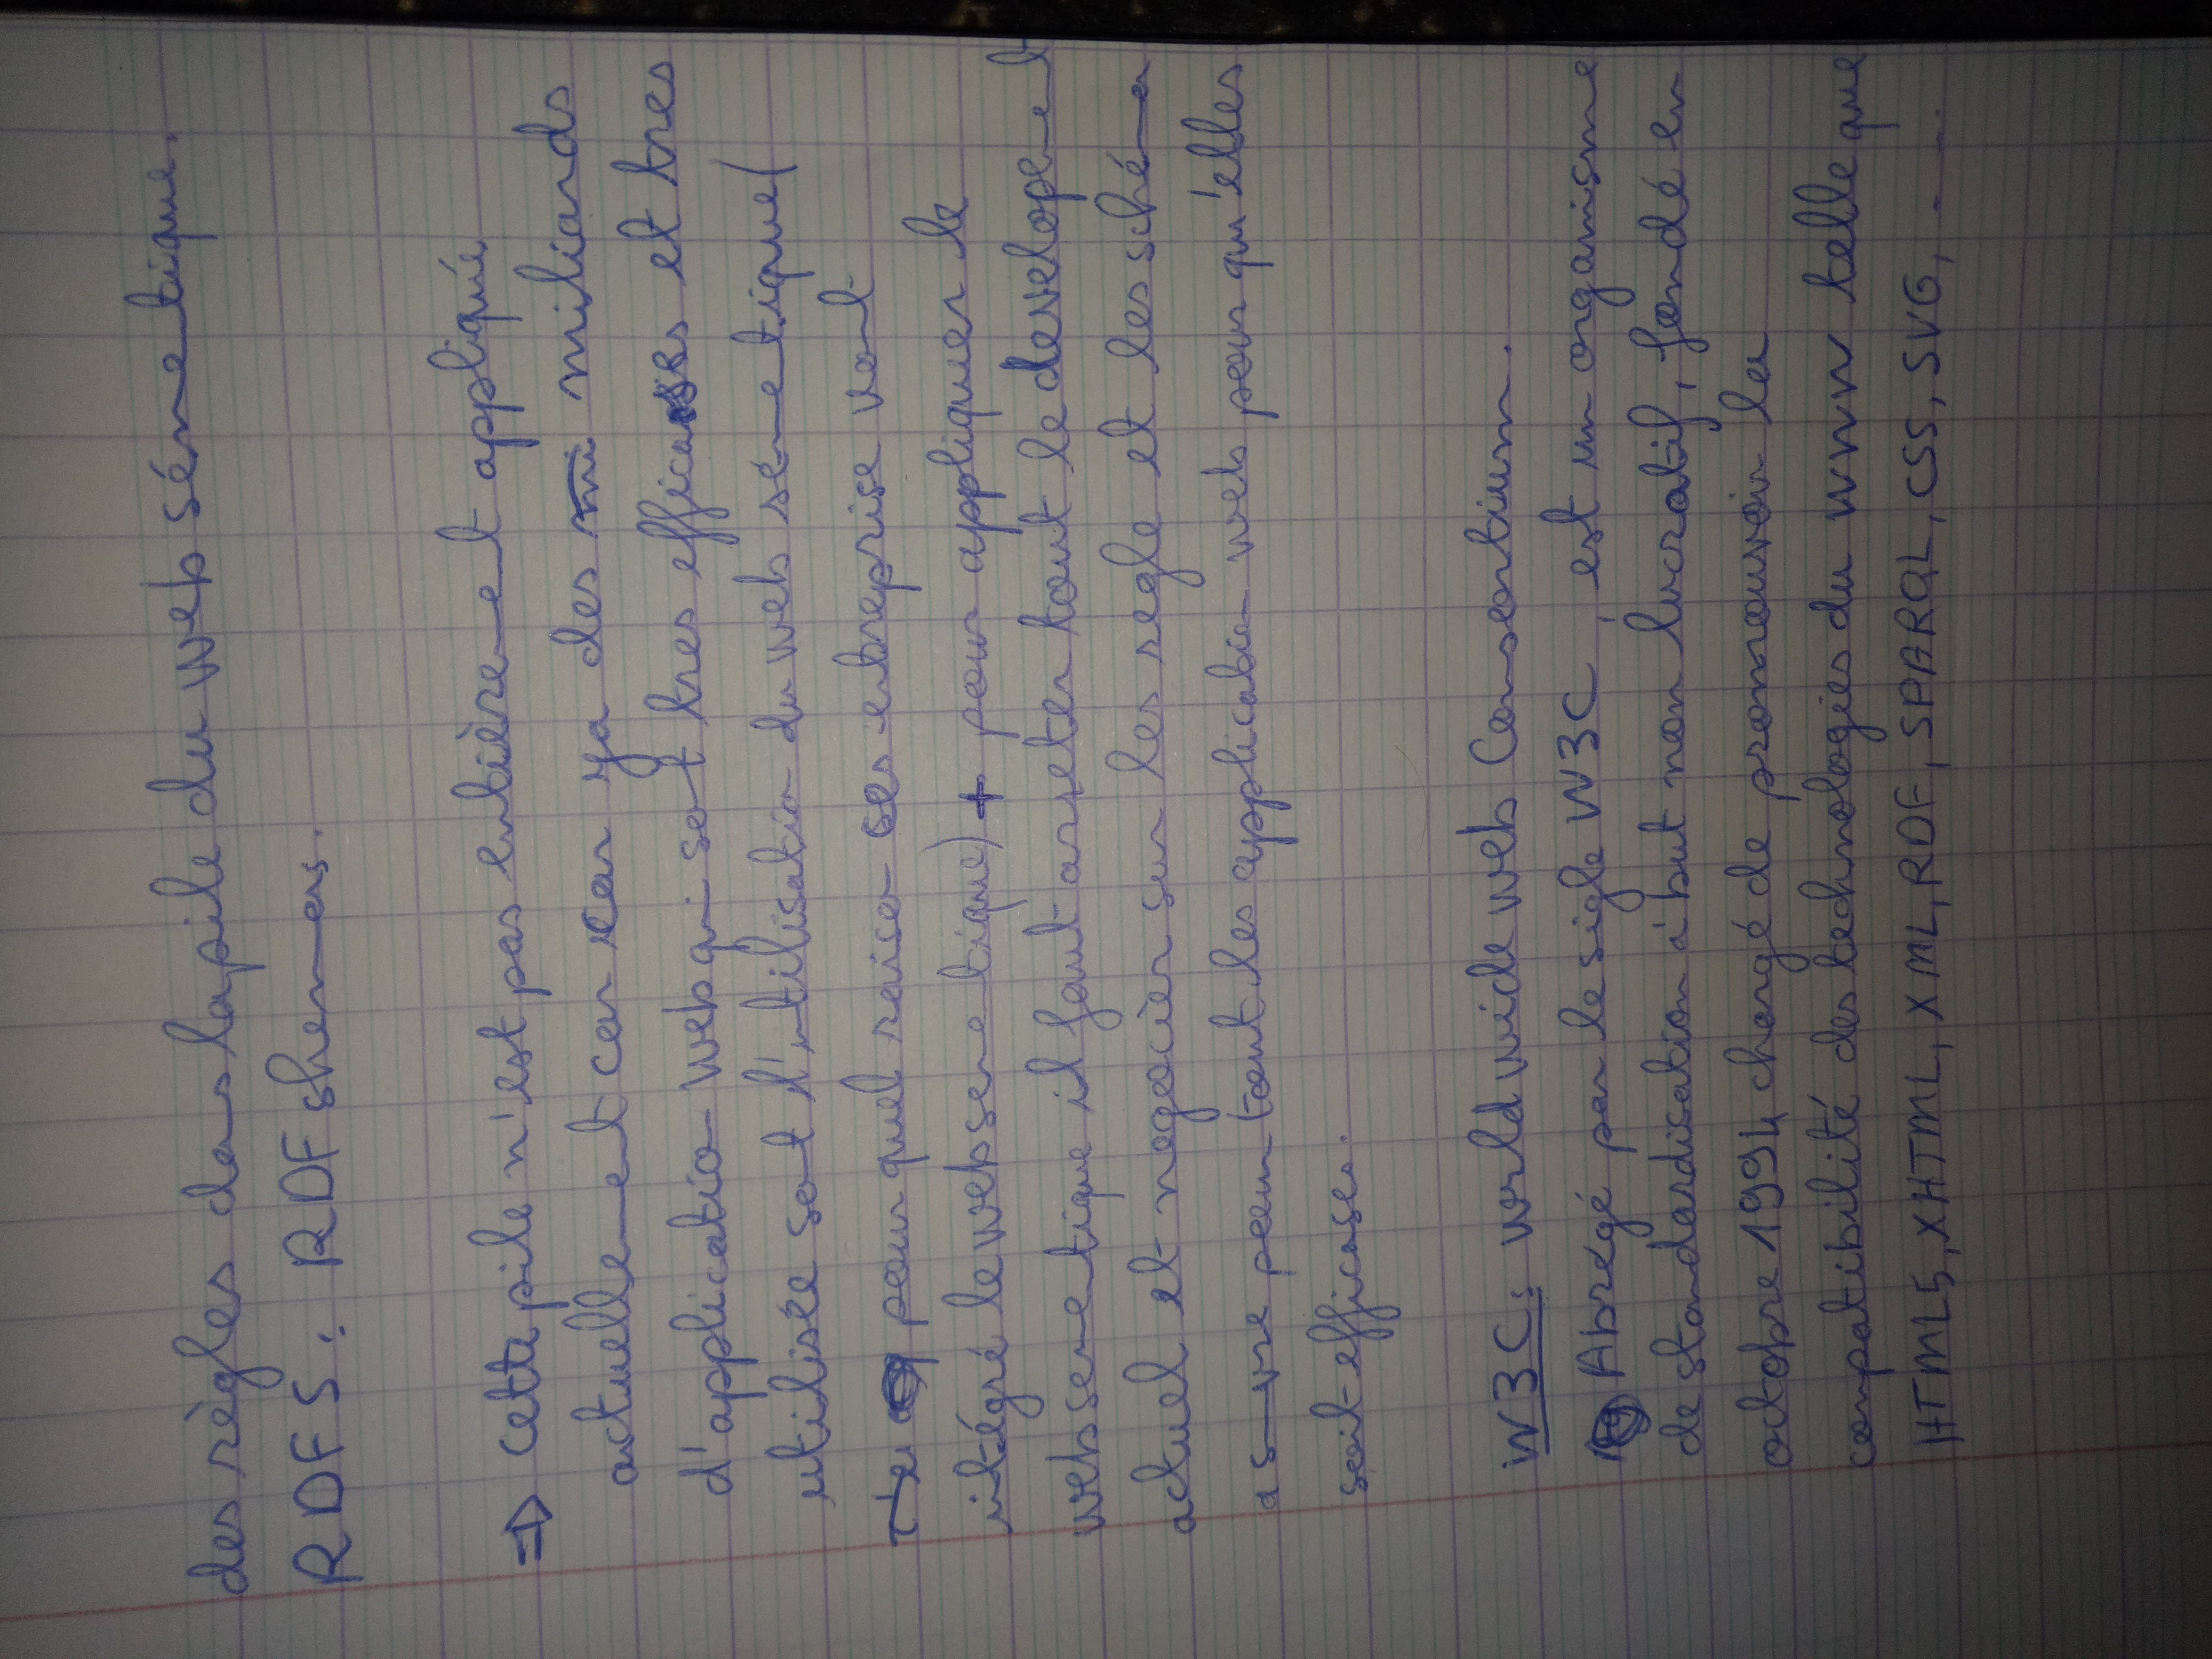 des règles dans la pile du web sémentique.
RDFS : RDF shemas.
⇒ cette pile n'est pas entièrement appliqué
actuellement car car ya des mi miliards
d'application web qui sont tres efficasses et tres
utilisée sont l'utilisation du web sémentique (
pour quel raison ces entreprise vont
intégré le web sementique) + pour appliquer le
web sementique il faut arreter tout le developement
actuel et negocier sur les regle et les schéma
a suivre pour tout les application web pour qu'elles
soit efficases.
W3C : world wide web Consortium.
Abrégé par le sigle W3C, est un organisme
de standardisation à but non lucratif, fondé en
octobre 1994 chargé de promouvoir la
compatibilité des technologies du www telle que
HTML5, XHTML, XML, RDF, SPARQL, CSS, SVG, ...